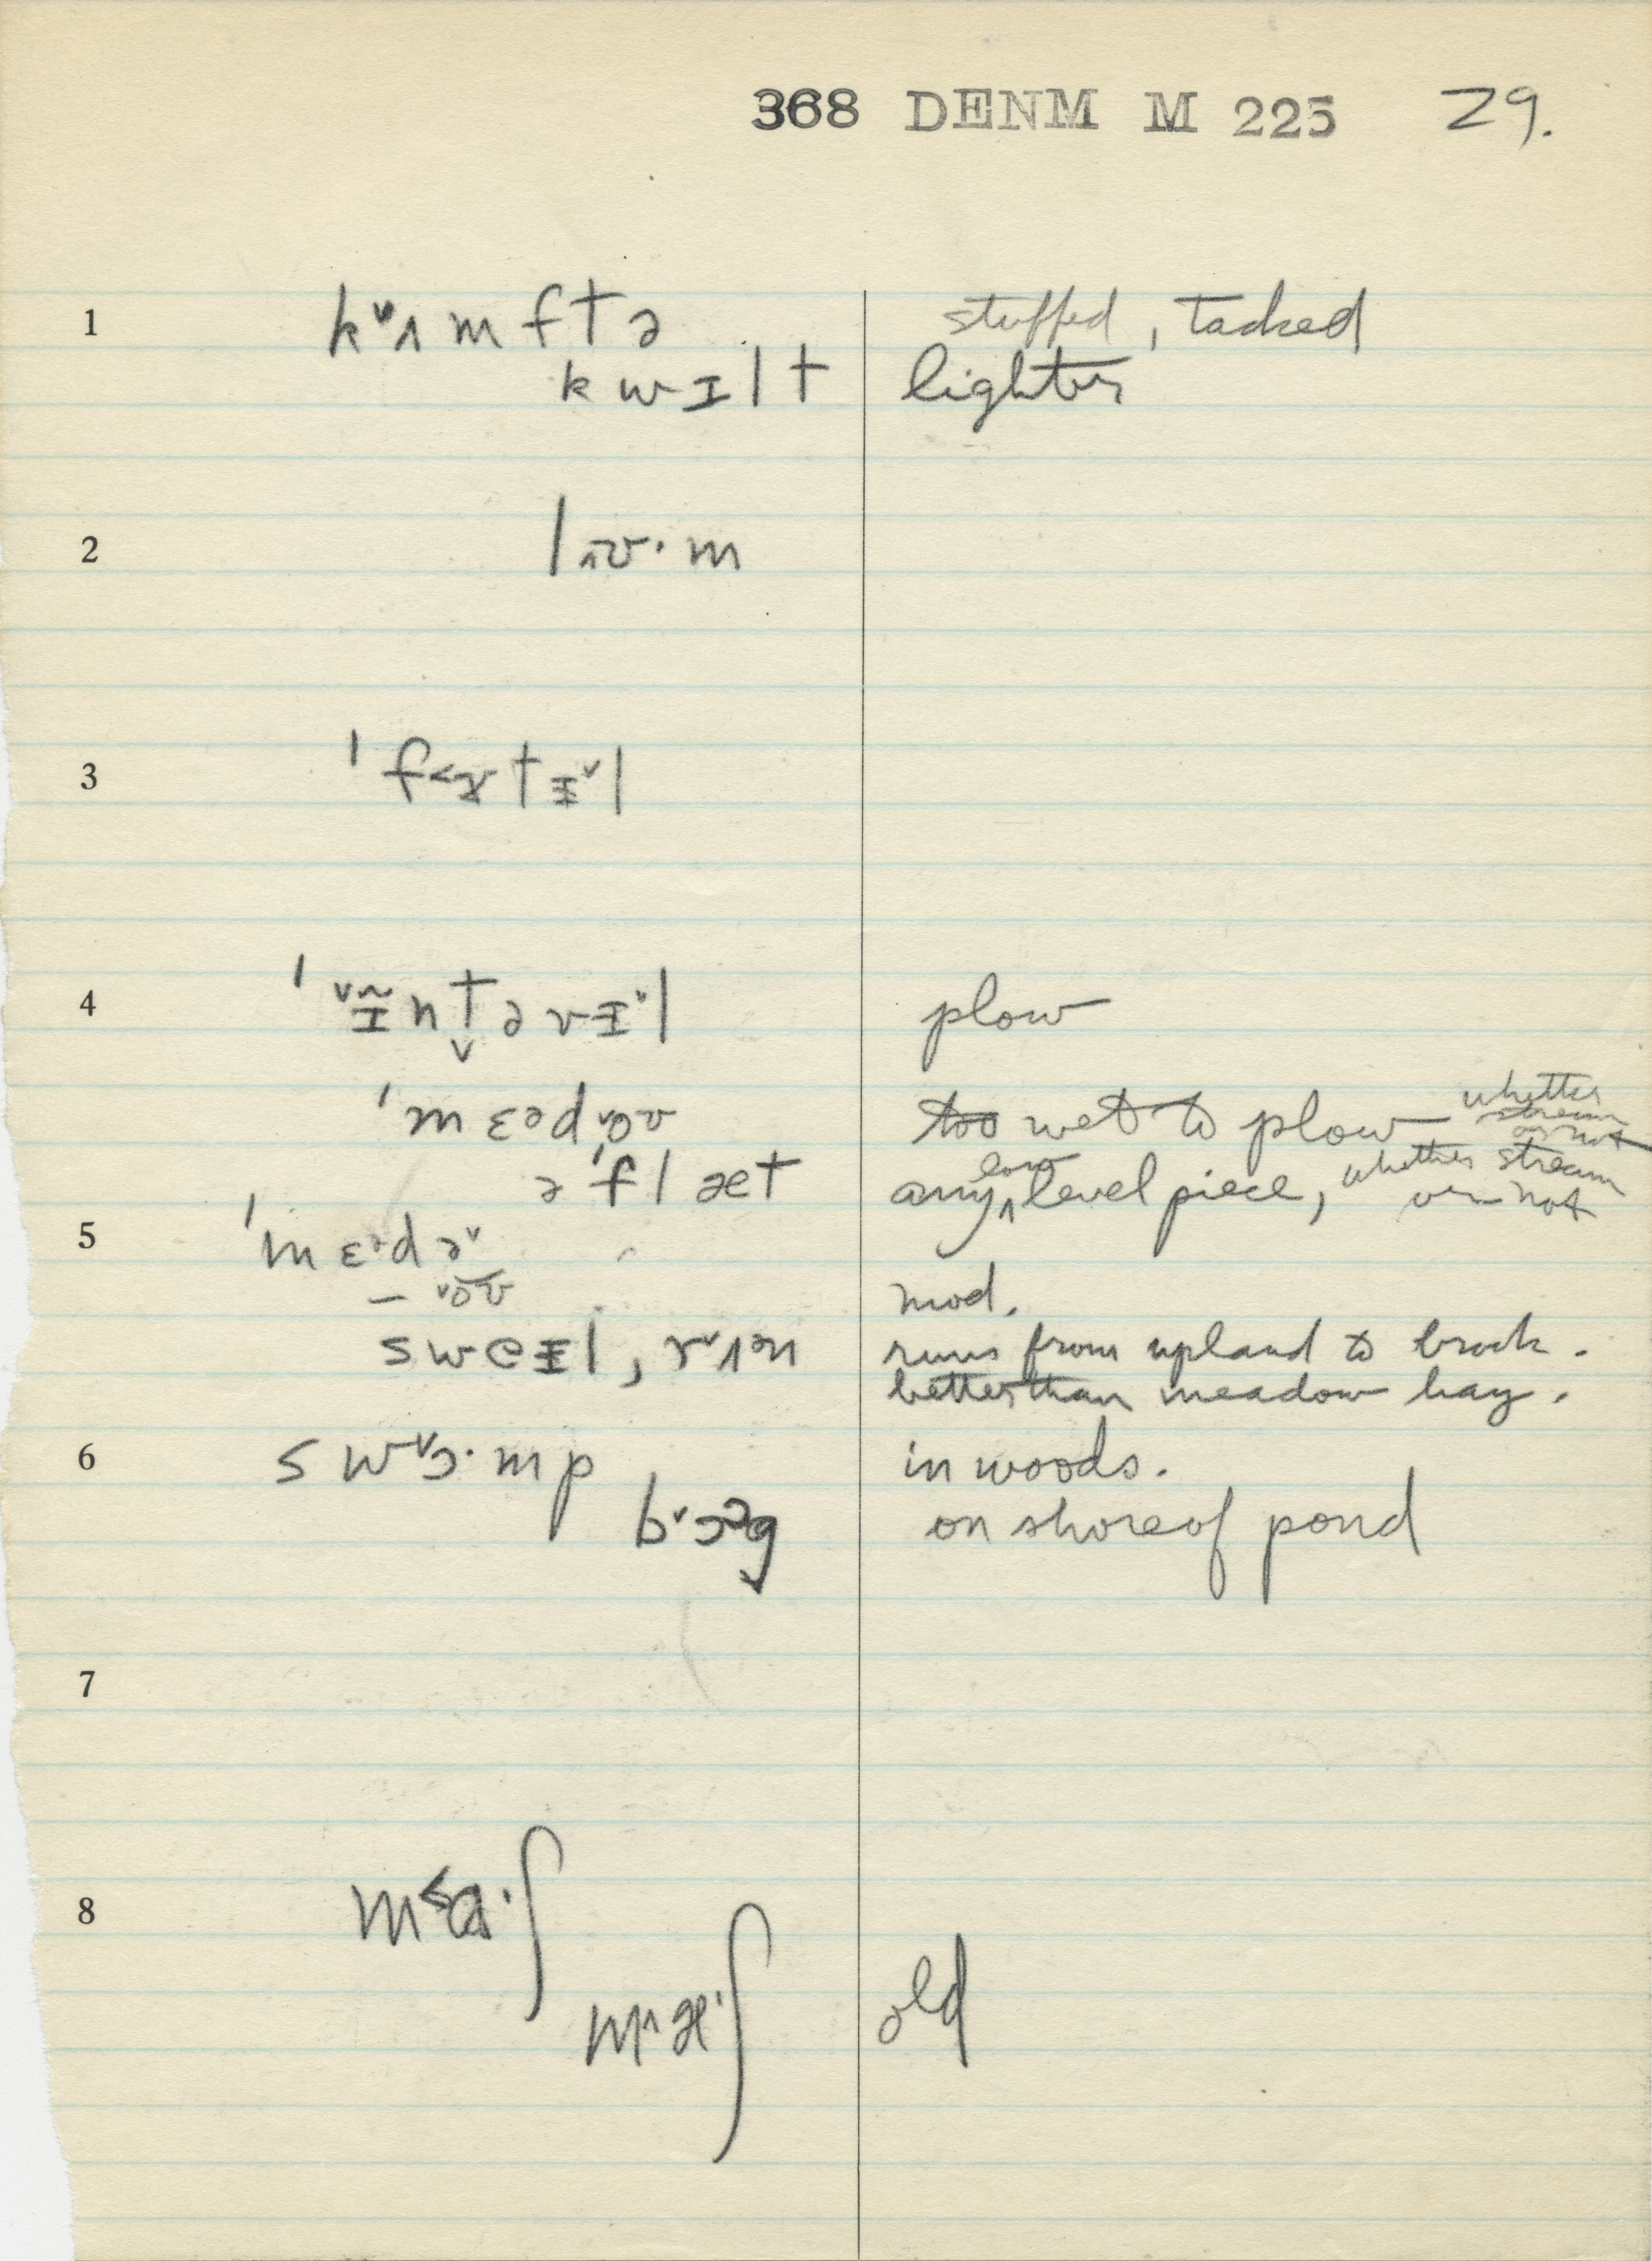 368 DENM M 225 29.
1 k˅ʌmftə stuffed, tacked
kwɪlt lighter
2
3
4 plow
too wet to plow whether stream or not
ə ˈflæt any ^low level piece, whether stream or not
5
mod.
runs from upland to brook.
better than meadow hay.
6 sw˅ɔ·mp in woods.
b˅ɔᵊg on shore of pond
7
8 m˂a·ʃ
m˄æ·ʃ old